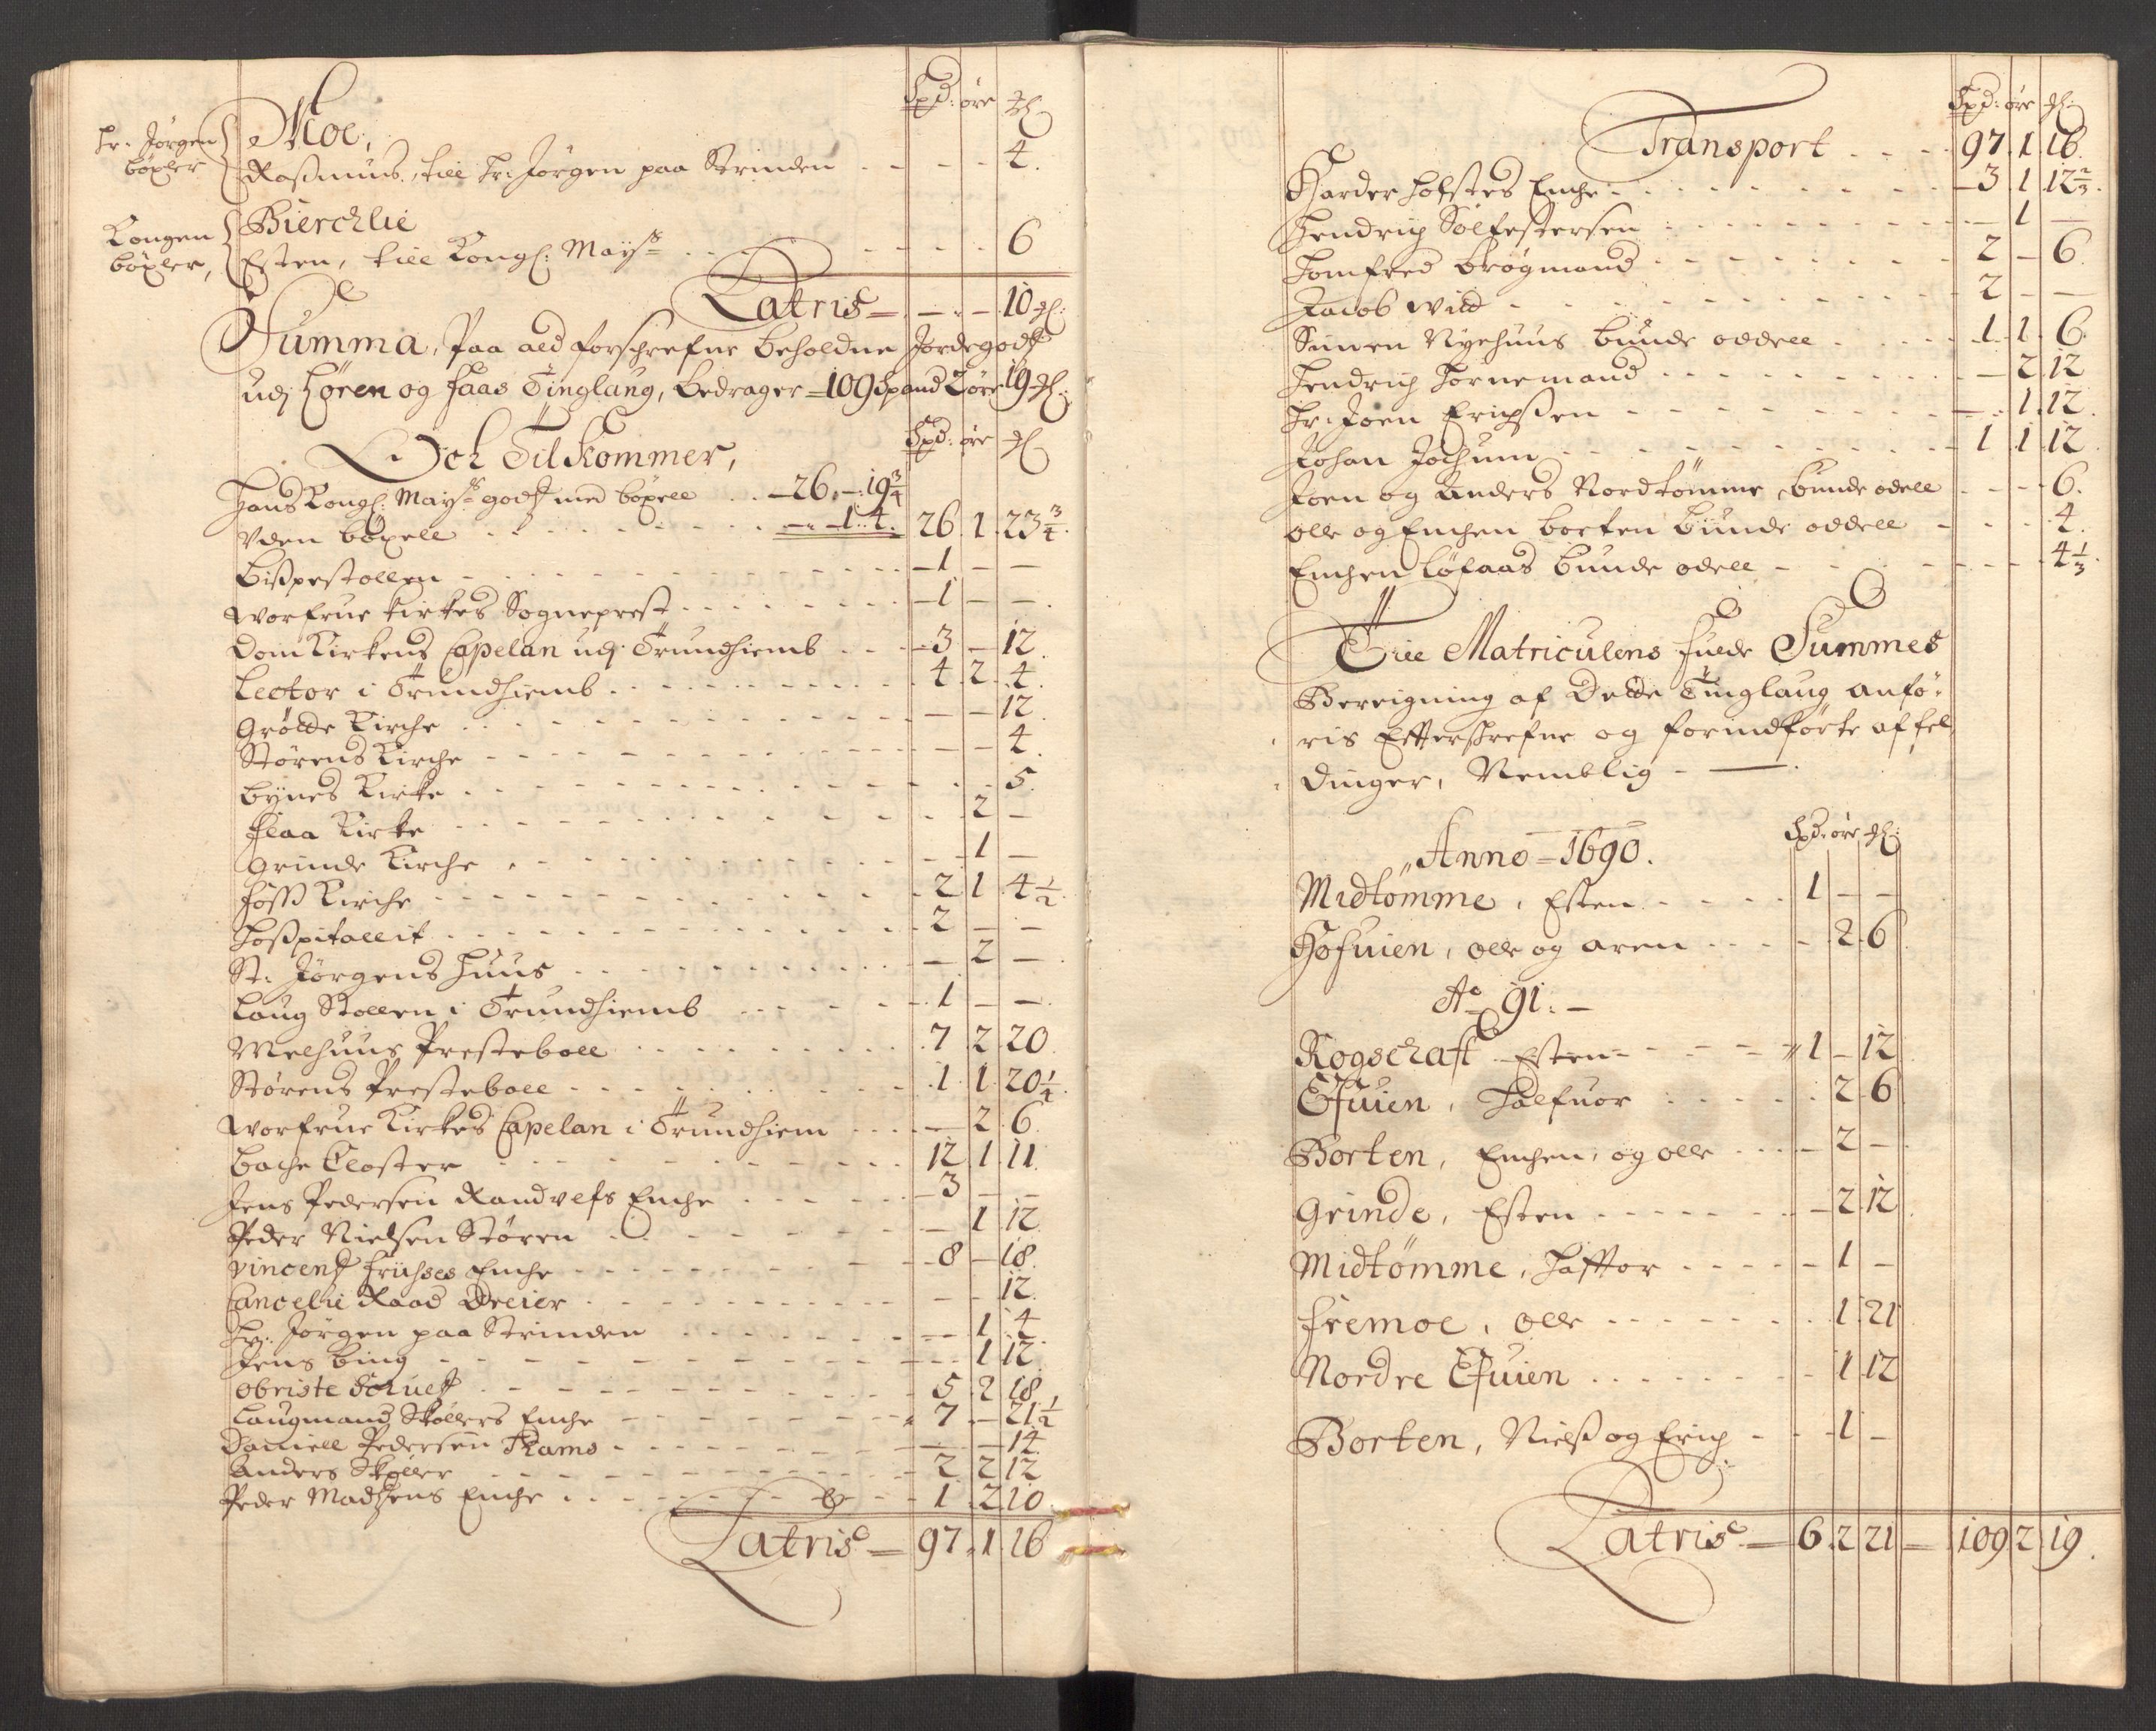 Spd: øre ₰
Hr. Jørgen böxler
Moe,
Rasmus, till Hr. Jørgen paa Strinden - - - 4.
Kongen böxler,
Bierchlie
Esten, till Kongl: Mayts - - - 6
Latris — — — 10 ₰:
Summa, Paa ald forschrefne beholdne Jordegods
udj Hören og Haas Tinglaug, Bedrager = 109 Spand 2 öre 19 ₰:
Och Tilkommer,
Spd: øre ₰
Hans Kongl: Mayts godts med böxell - - 26. — 19 3/4
Uden böxell - - - 1. 4. 26. 1. 23 3/4.
Bispestollen - - - 1 — —
Worfrue Kirkes Sogneprest - - - 1 — —.
Dom Kirkens Capelan udj Trundhiemb - - - 3 — 12.
Lector i Trundhiemb - - - 4 2 4.
Grötte Kirche - - - — — 12.
Störens Kirche - - - — — 4.
Bynes Kirke - - - 5.
Flaa Kirke - - - 2 —
Grinde Kirche - - - 1 —
Höss Kirche - - - 2 1 4 1/2.
Hospitallit - - - 2 — —
St. Jörgens Huus - - - — 2 —.
Laug Stollen i Trundhiemb - - - 1 — —.
Melhuus Presteboll - - - 7 2 20.
Störens Presteboll - - - 1. 1. 20 1/4.
Worfrue Kirkes Capelan i Trundhiem - - - — 2. 6.
Bache Closter - - - 12. 1. 11.
Jens Pedersen Randulfs Enche - - - 3 — —
Peder Nielsen Stören - - - — 1 12.
Vincents Hüsses Enche - - - 8 — 18.
Cancelie Raad Dreier - - - — - 12.
Hr. Jörgen paa Strinden - - - 1 4.
Jens Bing - - - 1 12.
Obriste Schults - - - 5 2 18.
Laugmand Sköllers Enche - - - 7 — 21 1/2
Daniell Pedersen Kams - - - — — 14.
Anders Sköller - - - 2 2 12
Peder Madsens Enche - - - 1 2 10.
Latris — 97. 1 16
Spd: öre ₰:
Transport - - - 97. 1. 16.
Harder Hofstes Enche - - - 3 1 12 2/3.
Hendrich Solfestersen - - - — 1 —
Jomfred Brögmand - - - 2 — 6.
Jacob Wild - - - 2 — —
Simen Nyehuus bunde oddell - - - 1 1. 6.
Hendrich Hornemand - - - — 2 12
Hr. Joen Erichsen - - - 1. 12.
Johan Jochum - - - 1 1 12.
Joen og Anders Nordtömme, bunde odell - - - 6.
Olle og Enchen Borten bunde oddell - - - 4.
Enchen Löfaas bunde odell - - - 4 1/3.
Till Matriculens fulde Summes
Bereigning af Dette Tinglaug anfö-
ris Efterschrefne og forindförte affel,
dinger, Nemblig - —.
Anno — 1690.
Spd: öre ₰:
Midtömme, Esten - - - 1 — —
Hofuien, Olle og Aren - - - 2. 6.
Ao 91. —
Rogschaft Esten - - - 1 — 12
Efuien, Halfuor - - - 2 6
Borten, Enchen, og Olle - - - 2 —
Grinde, Esten - - - 2 12
Midtömme, Haftor - - - 1 —
Fremoe, Olle - - - 1. 21
Nordre Efuien - - - 1 12
Borten, Nielss og Erich - - - 1 —
Latris — 6. 2 21 — 109 2 19.